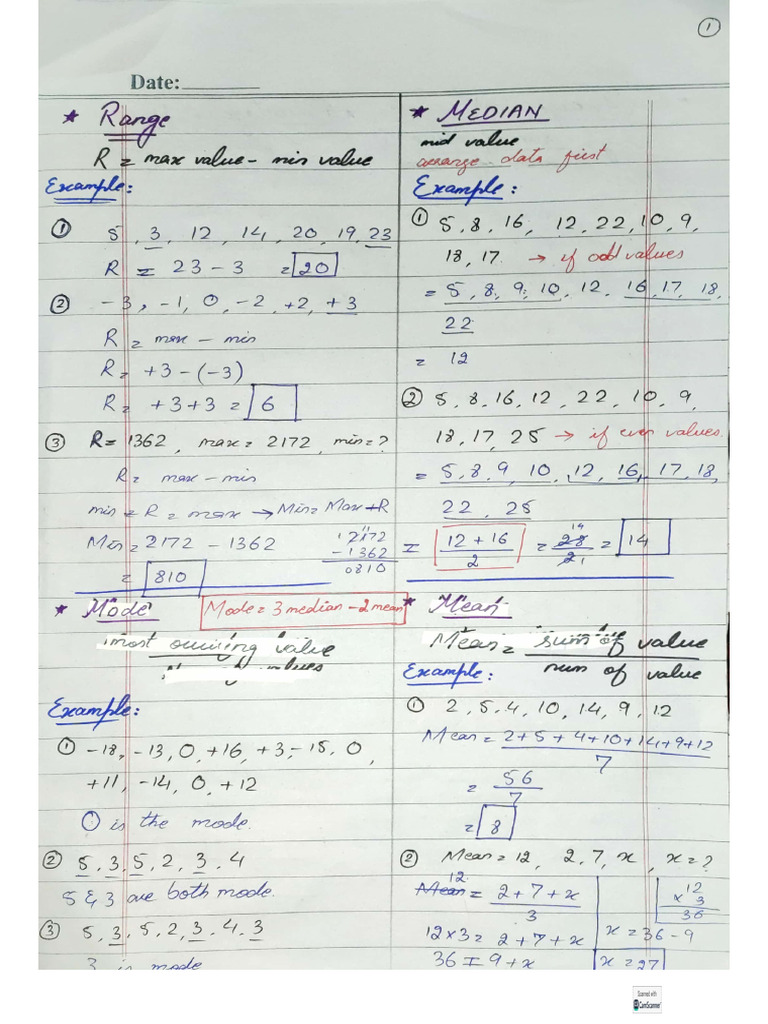 1
Date:
* Range
R = max value - min value
Example:
① 5, 3, 12, 14, 20, 19, 23
R = 23 - 3 = 20
② -3, -1, 0, -2, +2, +3
R = max - min
R = +3 - (-3)
R = +3 + 3 = 6
③ R = 1362, max = 2172, min = ?
R = max - min
min = R = max → Min = Max + R
Min = 2172 - 1362
= 810
2172
- 1362
0810
* MEDIAN
mid value
arrange data first
Example:
① 5, 8, 16, 12, 22, 10, 9,
18, 17. → if odd values
= 5, 8, 9, 10, 12, 16, 17, 18,
22
= 12
② 5, 8, 16, 12, 22, 10, 9,
18, 17, 25 → if even values.
= 5, 8, 9, 10, 12, 16, 17, 18,
22, 25
= 12 + 16 / 2 = 28 / 2 = 14
14
1
* Mode
Mode = 3 median - 2 mean
most value
values
Example:
① -18, -13, 0, +16, +3, -15, 0,
+11, -14, 0, +12
0 is the mode.
② 5, 3, 5, 2, 3, 4
5 & 3 are both mode.
③ 5, 3, 5, 2, 3, 4, 3
3 is mode
* Mean
Mean = sum of value
num of value
Example:
① 2, 5, 4, 10, 14, 9, 12
Mean = 2 + 5 + 4 + 10 + 14 + 9 + 12
7
= 56
7
= 8
② Mean = 12, 2, 7, x, x = ?
12
Mean = 2 + 7 + x
3
12 × 3 = 2 + 7 + x
36 = 9 + x
12
× 3
36
x = 36 - 9
x = 27
Scanned with
CS CamScanner